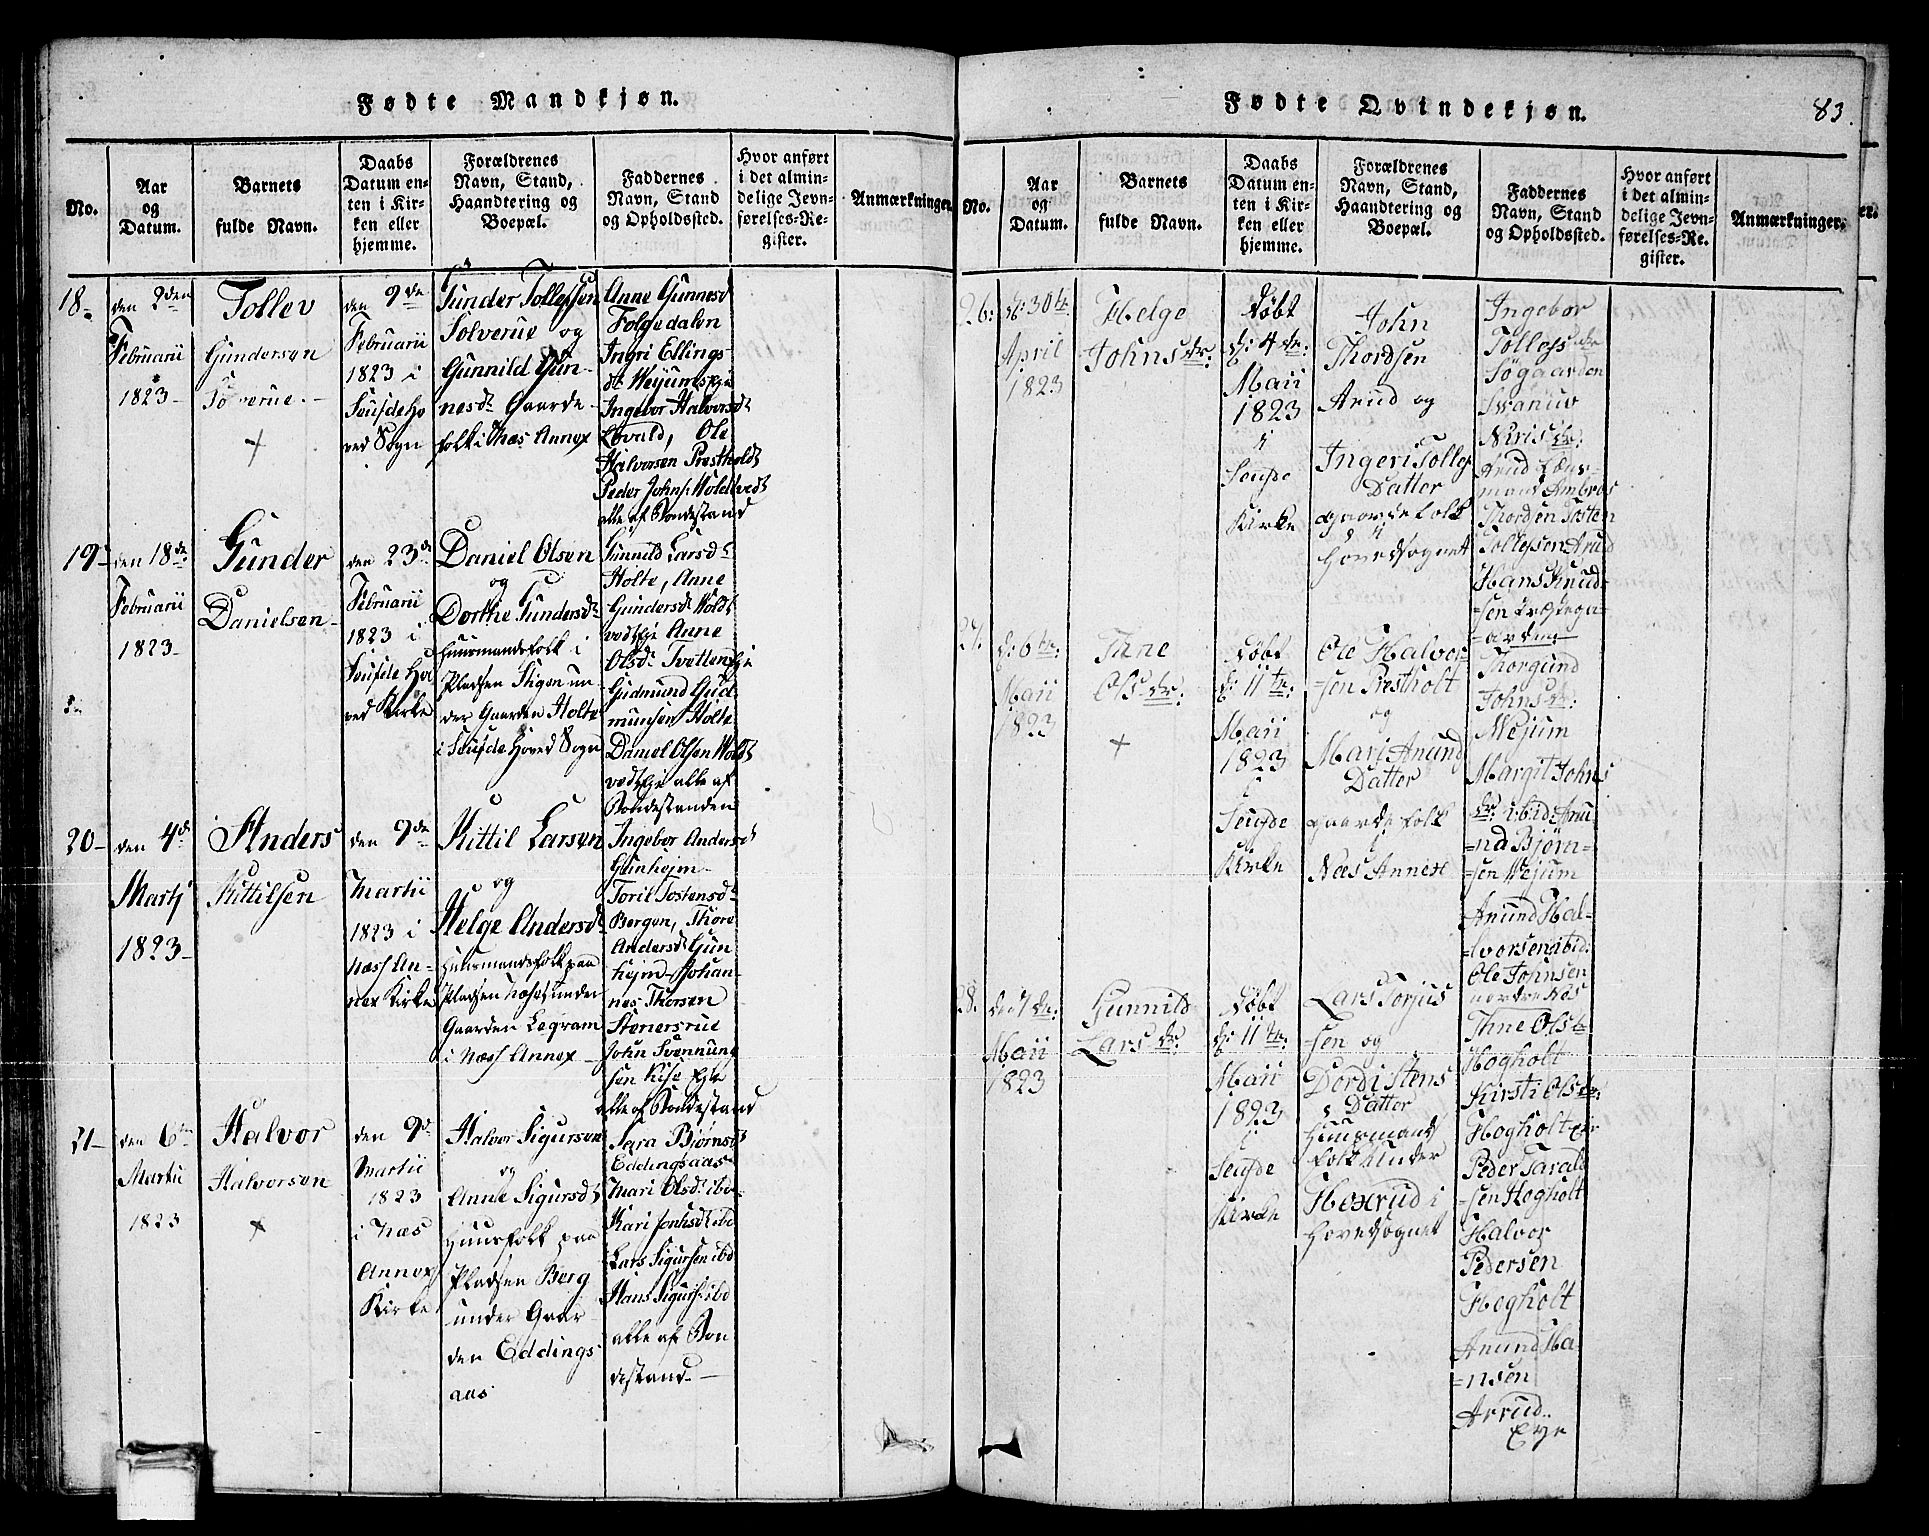 Fødte Mandkjøn.
No.
Aar
og
Datum.
Barnets
fulde Navn.
Daabs
Datum en-
ten i Kir-
ken eller
hjemme.
Forældrenes
Navn, Stand,
Haandtering og
Boepæl.
Faddernes
Navn, Stand
og Opholdssted.
Hvor anført
i det almin-
delige Jevn-
førelses-Re-
gister.
Anmærkninger.
18
den 2den
Februarii
1823
Tollev
Gundersen
Solverue
den 9de
Februarii
1823 i
Hoved Sogn
Gunder Tollefsen
Solverue og
Gunnild Gun-
nesdr Gaarde-
folk i Næs Annex
Anne Gunnesd
Folgedalen
Ingri Ellings-
Ingebor Halvorsdt
Lovald, Ole
Halvorsen Prestholdt
Peder Johns.
alle af Bondestand
19
den 18de
Februarii
1823
Gunder
Danielsen
den 23de
Februarii
1823 i
Seufde Ho
ved Kirke
Daniel Olsen
og
Dorthe Gundersdt
Huusmandsfolk i
Pladsen Stigen un-
der Gaarden Holte
i Seufde Hoved Sogn
Gunnild Larsdt
Holte, Anne
Gundersdt
Anne
Olsdt
Gudmund Gud-
munsen Holte
Daniel Olsen
alle af
Bondestanden
20
den 4de
Martj
1823
Anders
Kittilsen
den 9de
Martii
1823 i
Næss An-
nex Kirke
Kittil Larsen
og
Helge Andersdt
Huusmandsfolk paa
Pladsen under
Gaarden Legram
i Næss Annex
Ingebor Andersdt
Gunhejm
Toril Tostensdt
Bergen, Thore
Andersdt Gun
hejm Johan-
nes Thorsen
Stenersrue
John Svennung
sen Kise Eye
alle af Bondestand
21
den 6te
Martii
1823
Halvor
Halvorsen
den 9de
Martii
1823
i Næs
Annex
Kirke
Halvor Sigursen
og
Anne Sigursdt
Huusfolk paa
Pladsen Berg
under Gaar
den Eddings
aas
Sara Bjørnsdt
Eddingsaas
Mari Olsdt ibd
Kari
Lars Sigursen ibd
Hans Sigurs. ibd
alle af Bon
destand
Fødte Qvindekjøn.
83.
No.
Aar
og
Datum.
Barnets
fulde Navn.
Daabs
Datum en-
ten i Kir-
ken eller
hjemme.
Forældrenes
Navn, Stand,
Haandtering og
Boepæl.
Faddernes
Navn, Stand
og Opholdssted.
Hvor anført
i det almin-
delige Jevn-
førelses-Re-
gister.
Anmærkninger.
26:
d: 30te
April
1823
Helge
Johns dr:
Døbt
d: 4de:
Maii
1823
i
Seufde
Kirke
John
Thordsen
Arud og
Ingeri Tollefs
Datter
gaardefolk
i
Hovedsognet
Ingebor
Tollefs dr
Søgaarden
Neris dr:
Arud Lens-
mand Ambros
Thordsen Tosten
Tollefsen Arud
Hans Knud-
sen Præstega-
=arden
27.
d: 6te:
Maii
1823
Tine
Ols dr:
Døbt
d: 11te:
Maii
1823
i
Seufde
Kirke
Ole Halvor-
=sen Prestholt
og
Mari Anund
Datter
gaardefolk
i
Næs Annex
Thorgund
Johns dr:
Wejum
Margit Johns
dr: ibid: Anu
=nd Bjørn-
sen Wejum
Anund Hal-
=vorsen ibid:
Ole Johnsen
nordre Næs
28.
den 7de:
Maii
1823
Gunnild
Lars dr:
Døbt
d: 11te:
Maii
1823
i
Seufde
Kirke
Lars Torjus
=sen og
Dordi Stens
Datter
Huusmand
folk under
Hexrud i
Hovedsognet
Tine Ols dr
Hogholt
Kirsti Ols dr:
Hogholt eje
Peder Tarald
=sen Hogholt
Halvor
Pedersen
Hogholt
Anund Ha-
=nsen
Arrud
Eye